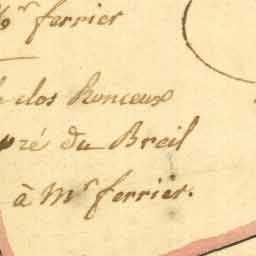 Mr ferrier
clos Ronceux
pré du Breil
à Mr ferrier.